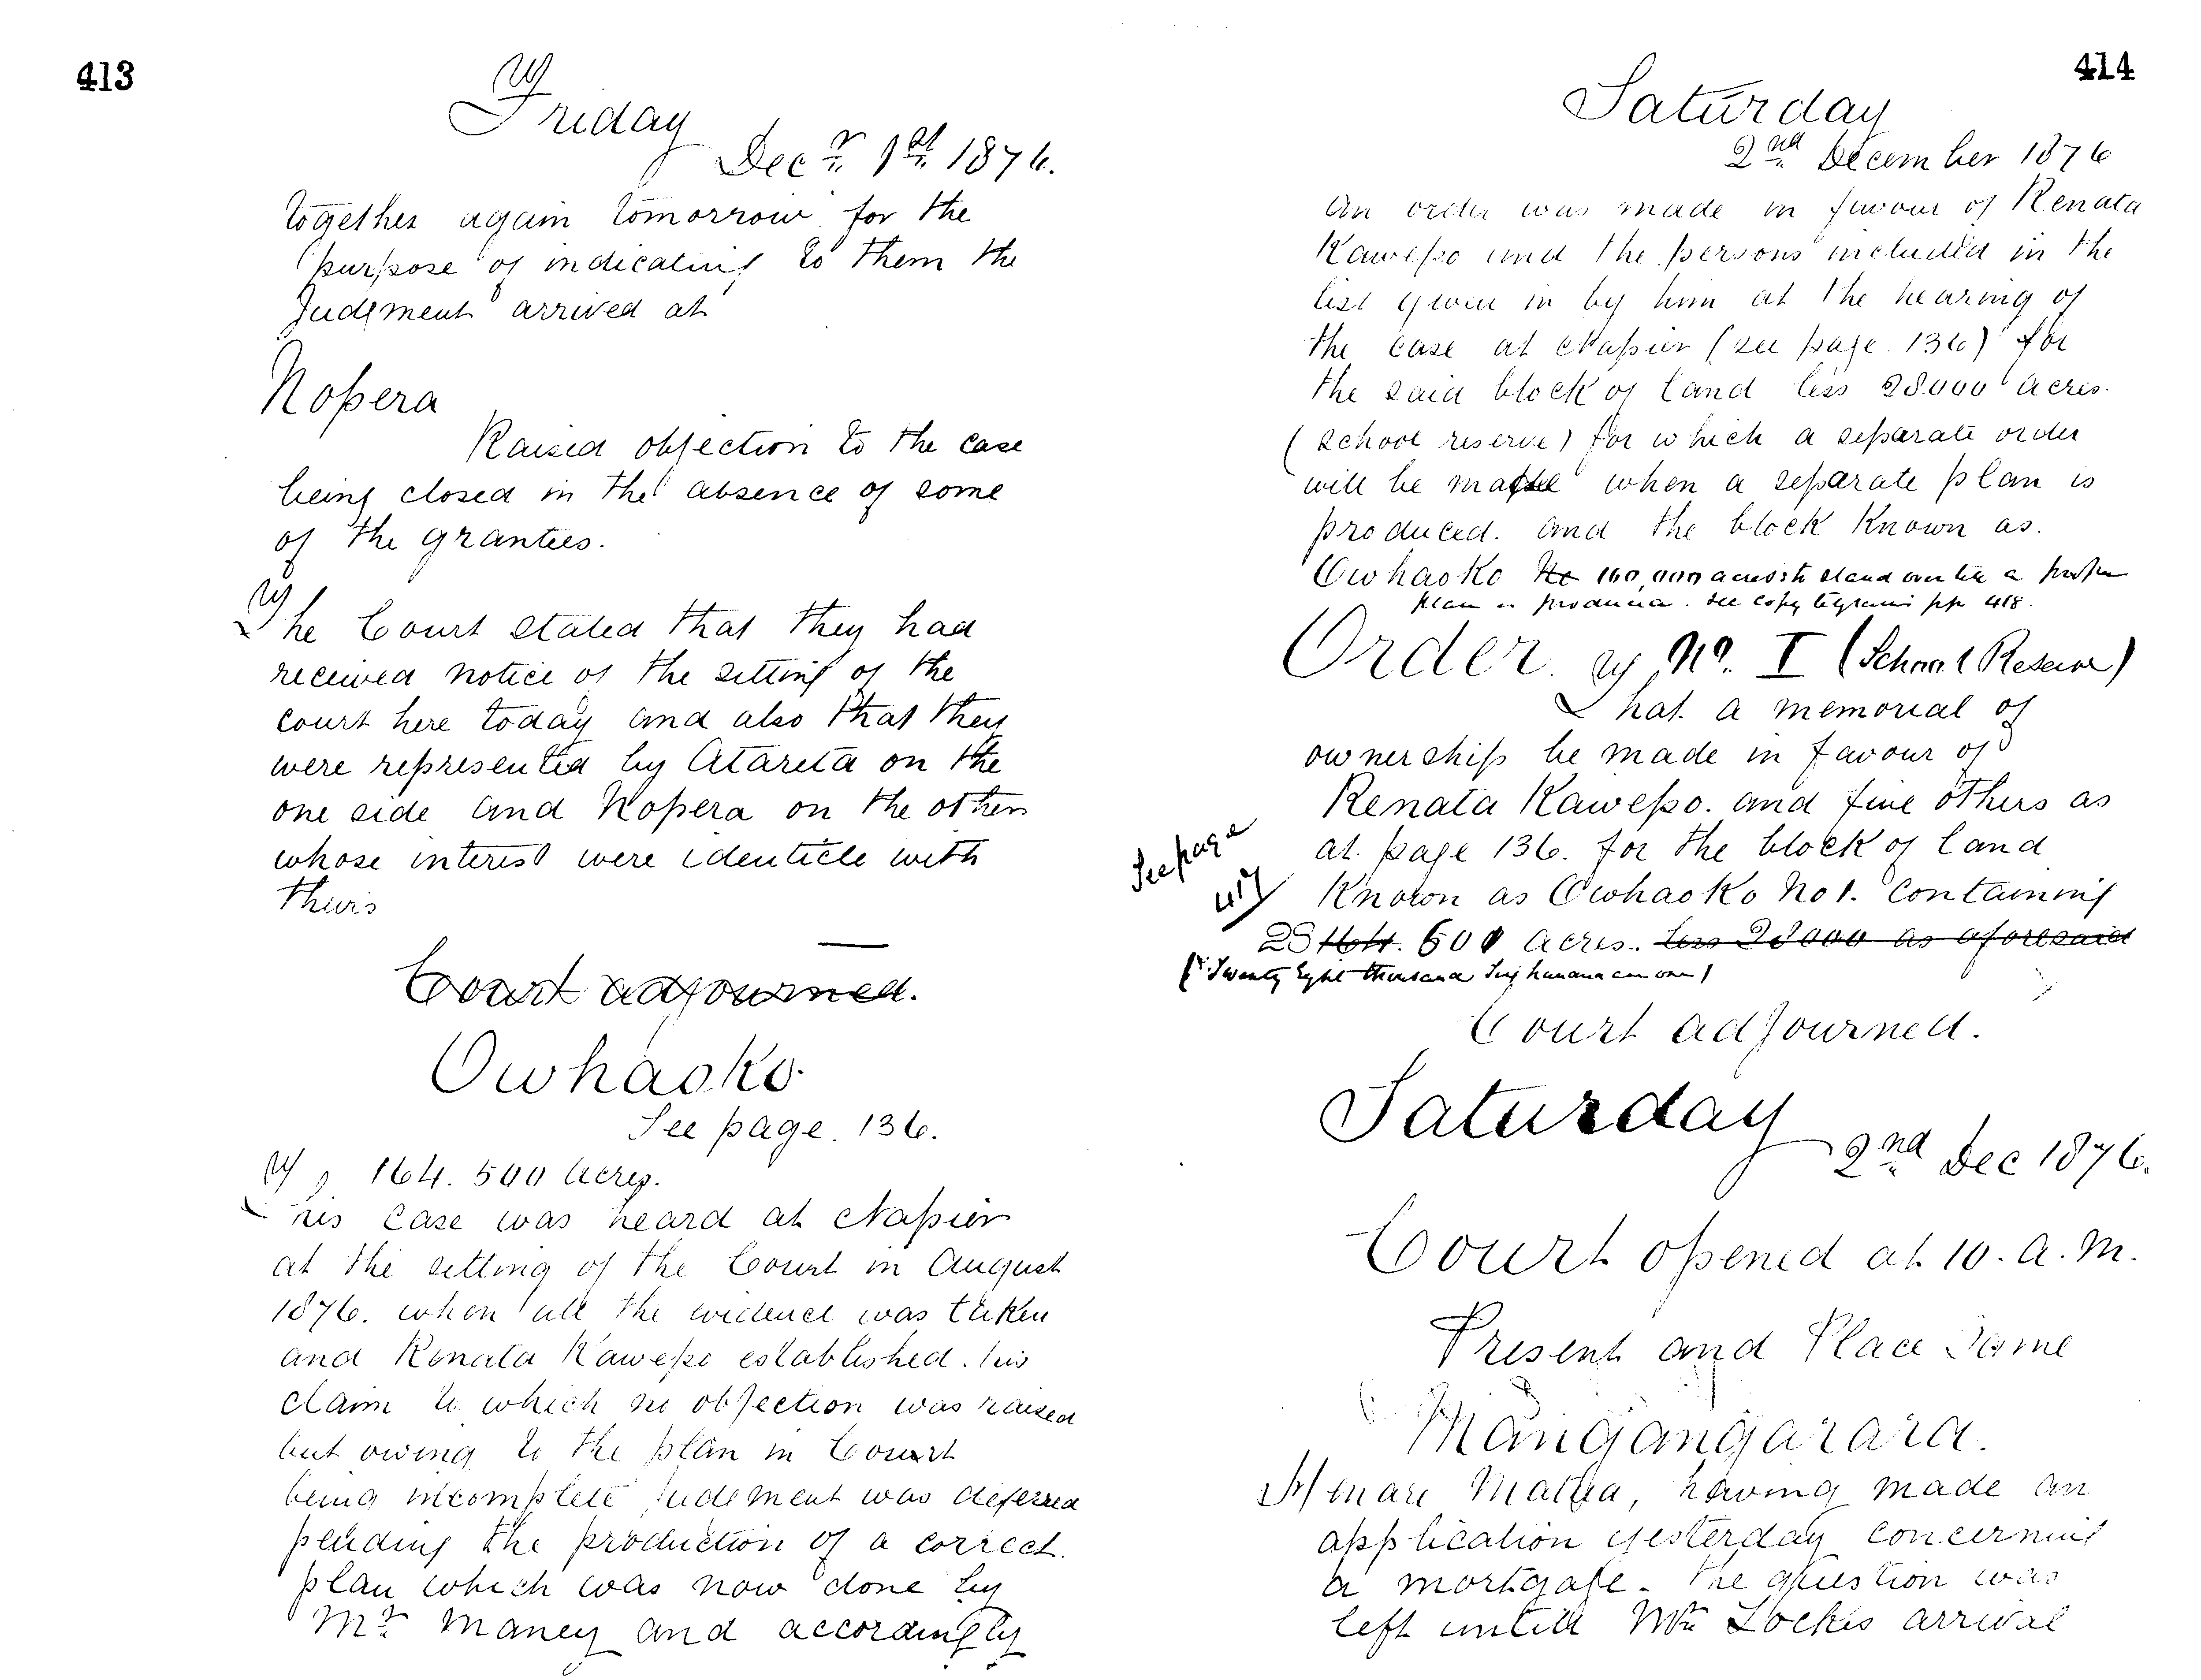 413
Friday
Decr. 1st. 1876.
together again tomorrow for the
purpose of indicating to them the
Judgment arrived at
Nopera
Raised objection to the case
being closed in the absence of some
of the grantees.
The Court stated that they had
received notice of the sitting of the
court here today and also that they
were represented by Atareta on the
one side and Nopera on the other
whose interest were identicle with
theirs
Court adjourned.
Owhaoko
See page. 136.
164.500 Acres.
This case was heard at Napier
at the sitting of the Court in August
1876. when all the evidence was taken
and Renata Kawepo established his
claim to which no objection was raised
but owing to the plan in Court
being incomplete judgment was deferred
pending the production of a correct.
plan which was now done by
Mr. Maney and accordingly
414
Saturday
2nd. December 1876
an order was made in favour of Renata
Kawepo and the persons included in the
list given in by him at the hearing of
the case at Napier (see page. 136) for
the said block of land less 28.000 acres.
(school reserve) for which a separate order
will be made when a separate plan is
produced. and the block known as.
Owhaoko No 160,000 acres to stand over till a proper
plan is produced. See copy telegrams pp 418.
Order No. I (School Reserve)
That a memorial of
ownership be made in favour of
Renata Kawepo. and five others as
at. page 136. for the block of land
See page
417
Known as Owhaoko No 1. containing
28 601 acres. less 28000 as aforesaid
(Twenty Eight thousand Six hundred and one)
Court adjourned.
Saturday
2nd. Dec 1876.
Court opened at 10. a.m.
Present and Place Same
Mangangarara.
Henare Matua, having made an
application yesterday concerning
a mortgage. the question was
left untill Mr Lockes arrival